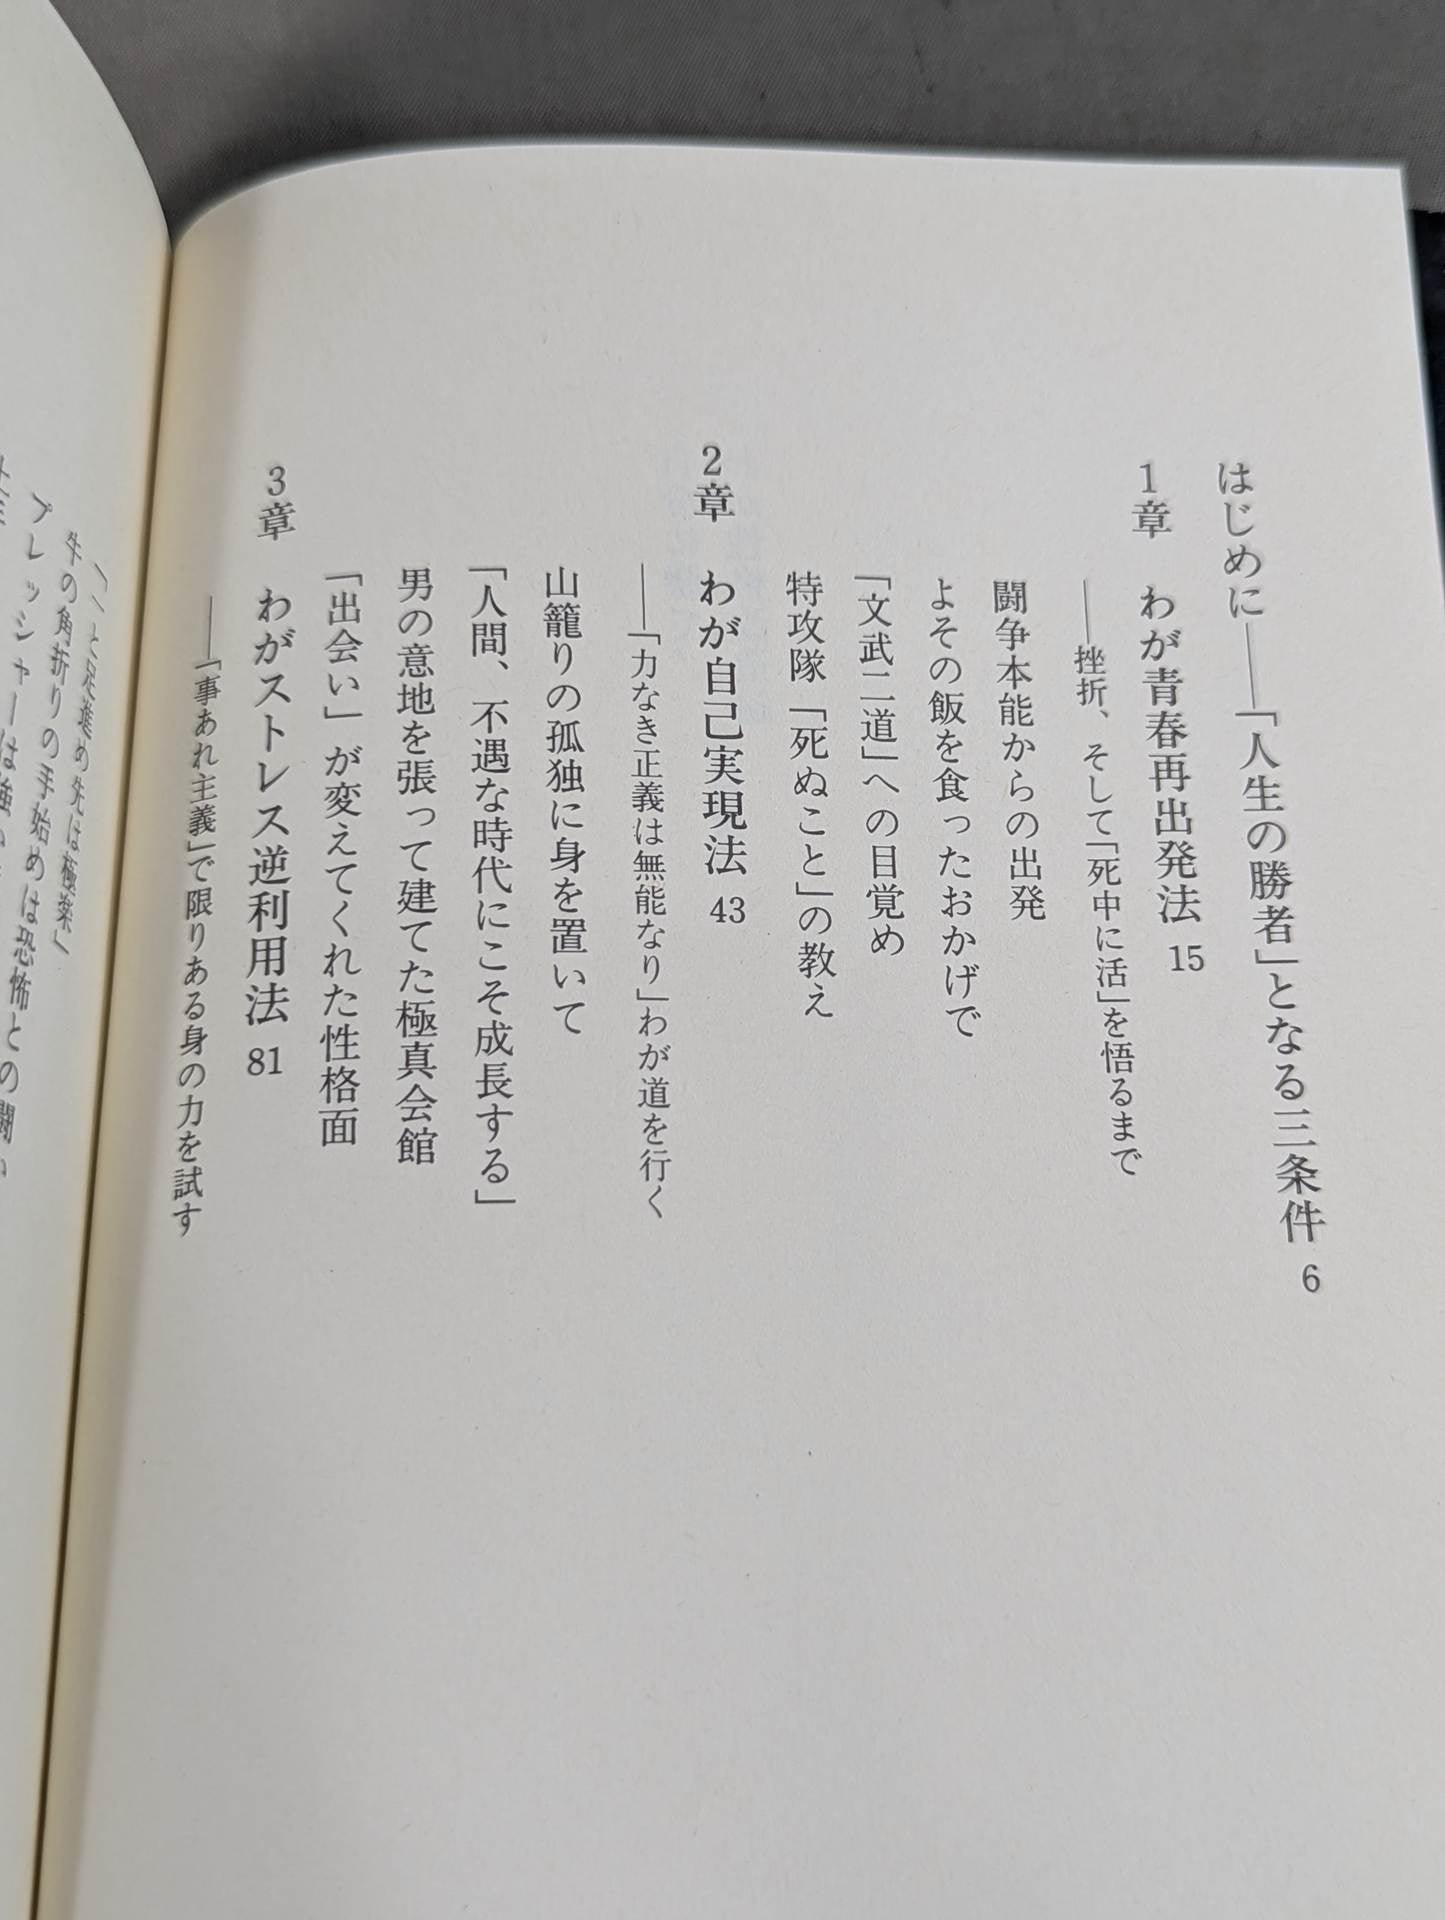 はじめに――「人生の勝者」となる三条件 6
1章 わが青春再出発法 15
――挫折、そして「死中に活」を悟るまで
闘争本能からの出発
よその飯を食ったおかげで
「文武二道」への目覚め
特攻隊「死ぬこと」の教え
2章 わが自己実現法 43
――「力なき正義は無能なり」わが道を行く
山籠りの孤独に身を置いて
「人間、不遇な時代にこそ成長する」
男の意地を張って建てた極真会館
「出会い」が変えてくれた性格面
3章 わがストレス逆利用法 81
――「事あれ主義」で限りある身の力を試す
と足進め先は極楽」
牛の角折りの手始めは恐怖との闘い
プレッシャーは強い